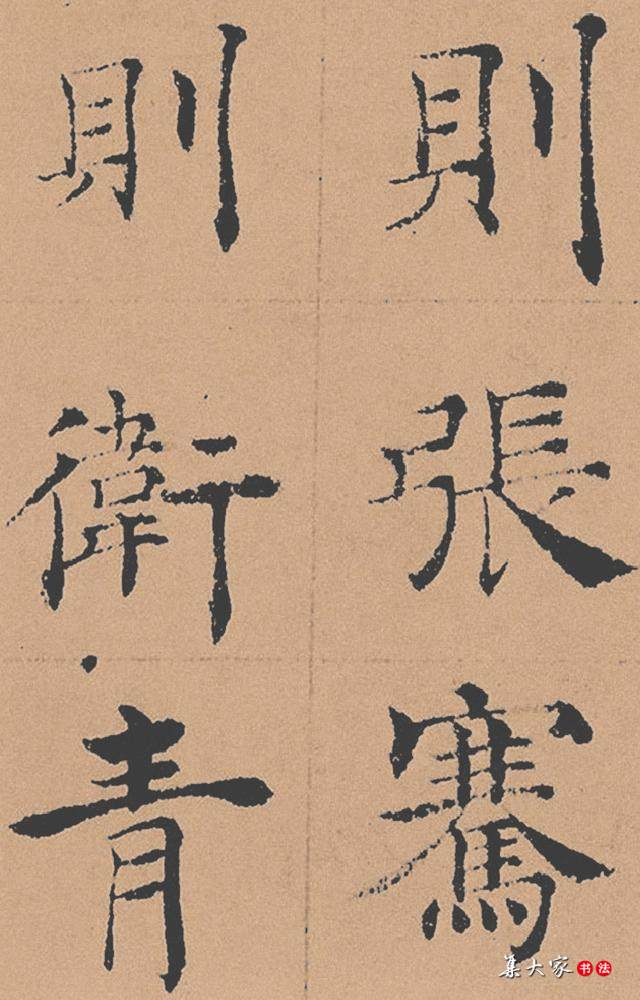 則張騫
則衛青
集大家书法